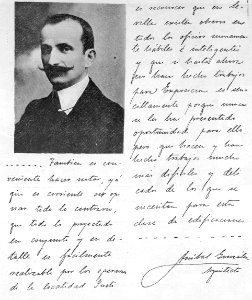 es reconocer que en Se-
villa existen obreros en
todos los oficios sumamen-
te hábiles e inteligentes
y que si hasta ahora
no han hecho trabajos
para Exposición es sen-
cillamente porque nunca
se les ha presentado
oportunidad para ello
pero que hacen y han
hecho trabajos mucho
más difíciles y deli-
cados de los que se
necesitan para esta
clase de edificaciones
También es con-
veniente hacer notar, ya
que es corriente su-po-
ner todo lo contrario,
que todo lo proyectado
en conjunto y en de-
talle es fácilmente
realizable por los operarios
de la localidad
Aníbal González
Arquitecto